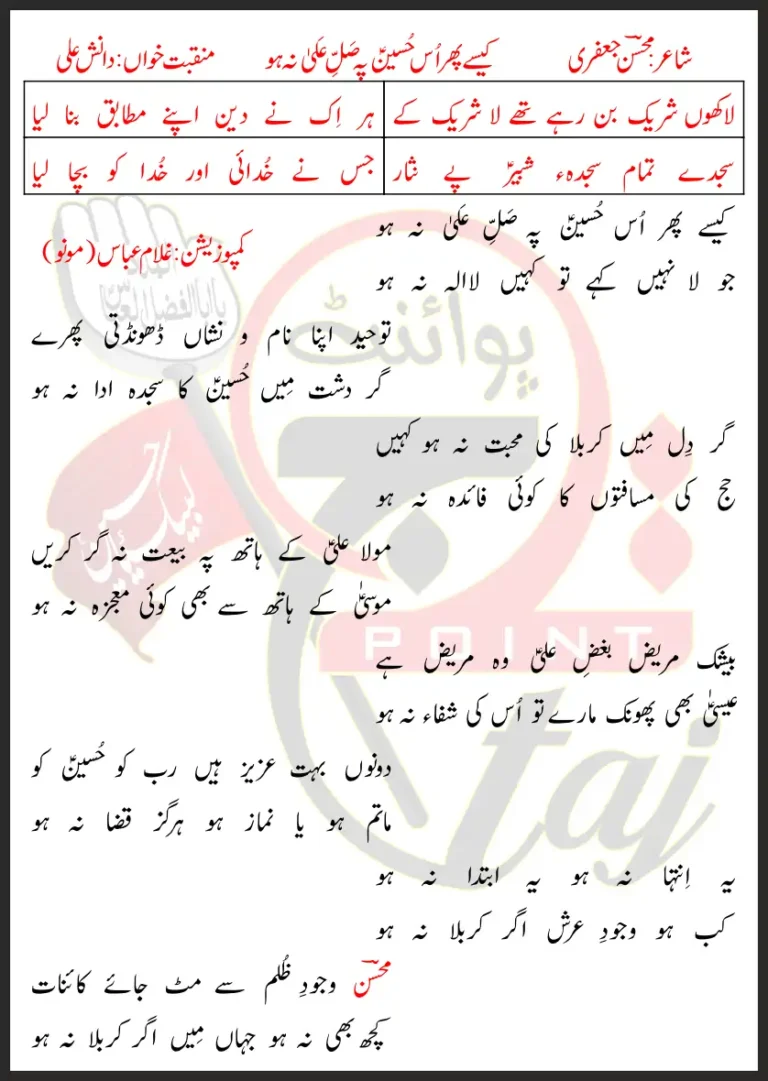 شاعر: محسنؔ جعفری کیسے پھر اُس حُسینؑ پہ صَلِّ عَلیٰ نہ ہو منقبت خواں: دانش علی
لاکھوں شریک بن رہے تھے لا شریک کے ہر اِک نے دین اپنے مطابق بنا لیا
سجدے تمام سجدہء شبیرؑ پے نثار جس نے خُدائی اور خُدا کو بچا لیا
کیسے پھر اُس حُسینؑ پہ صَلِّ عَلیٰ نہ ہو
کمپوزیشن: غلام عباس (مونو)
جو لا نہیں کہے تو کہیں لاالہ نہ ہو
توحید اپنا نام و نشاں ڈھونڈتی پھرے
گر دشت مِیں حُسینؑ کا سجدہ ادا نہ ہو
گر دِل مِیں کربلا کی محبت نہ ہو کہیں
حج کی مسافتوں کا کوئی فائدہ نہ ہو
مولا علیؑ کے ہاتھ پہ بیعت نہ گر کریں
موسیٰؑ کے ہاتھ سے بھی کوئی معجزہ نہ ہو
بیشک مریض بغضِ علیؑ وہ مریض ہے
عیسیٰؑ بھی پھونک مارے تو اُس کی شفاء نہ ہو
دونوں بہت عزیز ہیں رب کو حُسینؑ کو
ماتم ہو یا نماز ہو ہرگز قضا نہ ہو
یہ اِنتہا نہ ہو یہ ابتدا نہ ہو
کب ہو وجودِ عرش اگر کربلا نہ ہو
محسنؔ وجودِ ظُلم سے مٹ جائے کائنات
کچھ بھی نہ ہو جہاں مِیں اگر کربلا نہ ہو
پوائنٹ
POINT
taj
لبیک یا حسین